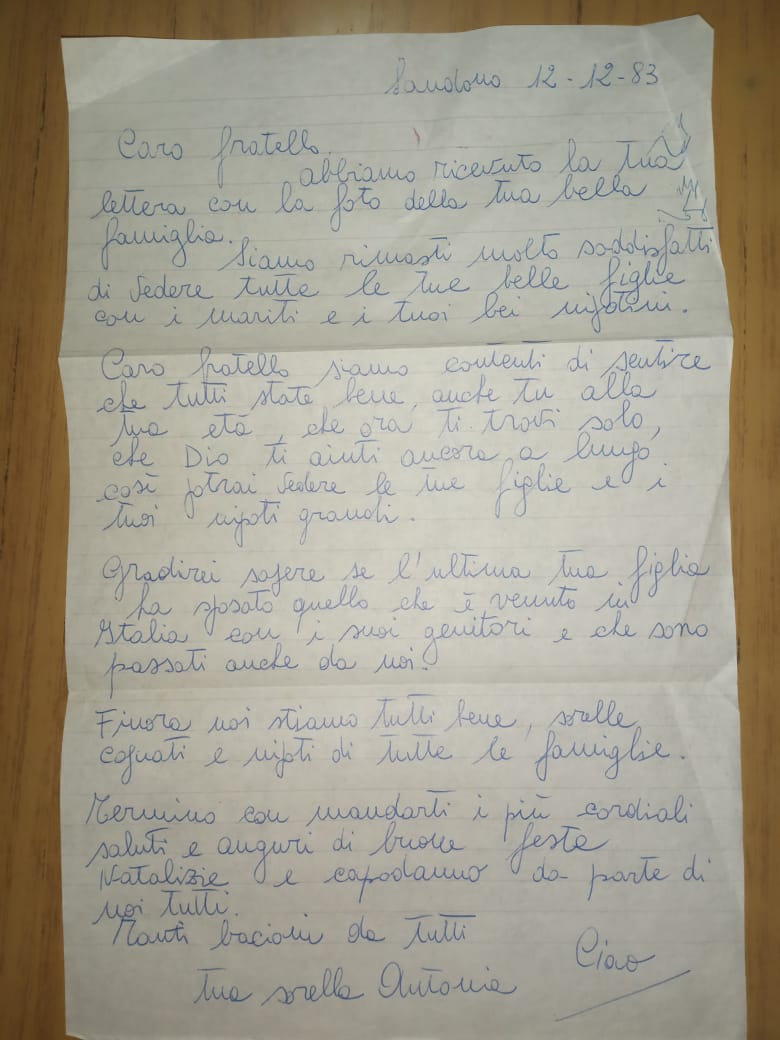 Sandono 12-12-83
Caro fratello,
abbiamo ricevuto la tua
lettera con la foto della tua bella
famiglia.
Siamo rimasti molto soddisfatti
di vedere tutte le tue belle figlie
con i mariti e i tuoi bei nipotini.
Caro fratello siamo contenti di sentire
che tutti state bene, anche tu alla
tua età, che ora ti trovi solo,
che Dio ti aiuti ancora a lungo
così potrai vedere le tue figlie e i
tuoi nipoti grandi.
Gradirei sapere se l'ultima tua figlia
ha sposato quello che è venuto in
Italia con i suoi genitori e che sono
passati anche da noi.
Finora noi stiamo tutti bene, sorelle,
cognati e nipoti di tutte le famiglie.
Termino con mandarti i più cordiali
saluti e auguri di buone feste
Natalizie e capodanno da parte di
noi tutti.
Tanti bacioni da tutti
Ciao
tua sorella Antonia